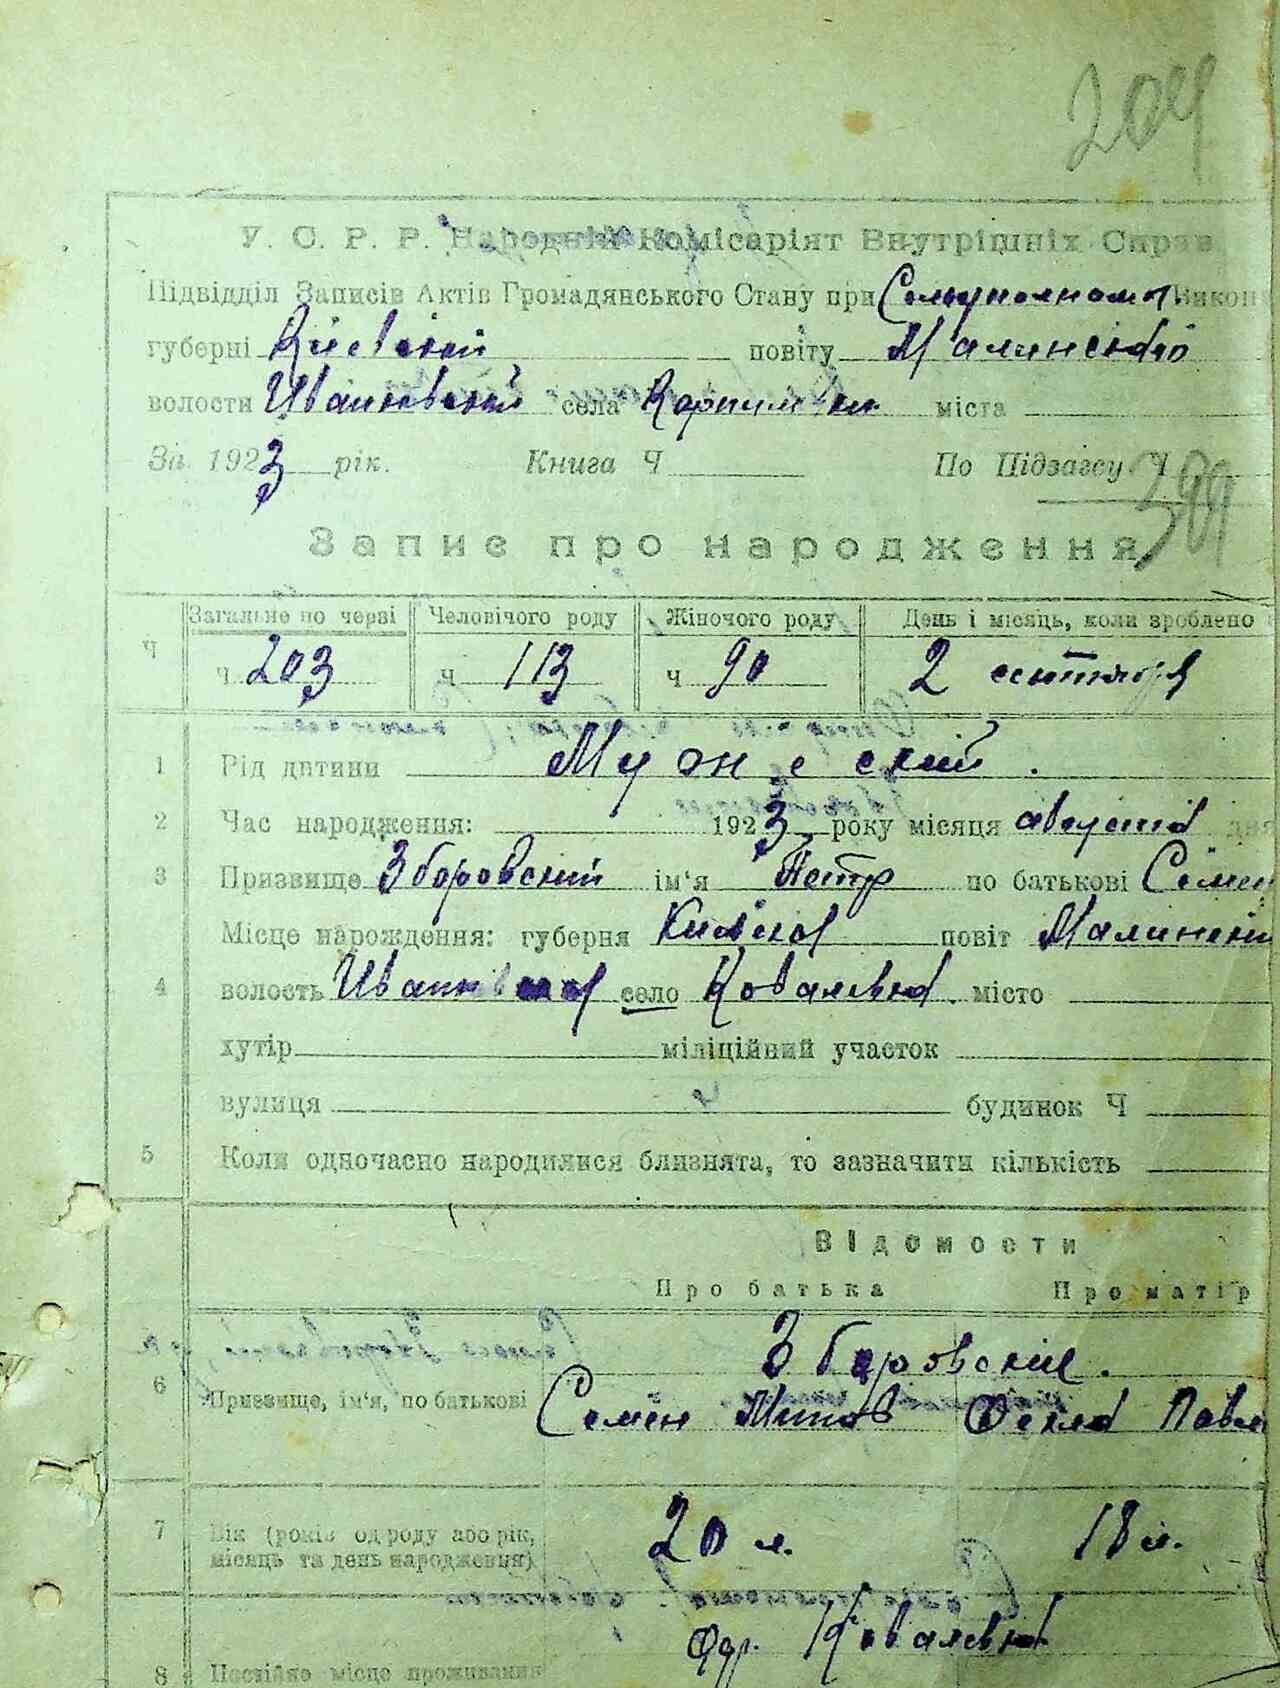 204
У. С. Р. Р. Народній Комісаріят Внутрішніх Справ
Підвідділ Записів Актів Громадянського Стану при Викон
губерні Киевской повіту Малинской
волости Иванковской села міста
За 1923 рік. Книга Ч По Підзагсу Ч
Запис про народження
Загальне по черзі Человічого роду Жіночого роду День і місяць, коли зроблено
Ч ч 203 ч 113 ч 90 2 сентября
1 Рід дитини Мужеский.
2 Час народження: 1923 року місяця августа дня
3 Призвище Зборовский ім'я Петр по батькові Семен
Місце народження: губерня Киевска повіт Малинский
4 волость село Ковалевка. місто
хутір міліційний участок
вулиця будинок Ч
5 Коли одночасно народилися близнята, то зазначити кількість
Відомости
Про батька Про матір
Зборовские.
6 Призвище, ім'я, по батькові Семен Титов Фекла Павл
7 Вік (років од роду або рік, 20 л. 18 л.
місяць та день народження)
Ковалевка
8 Постійне місце проживання